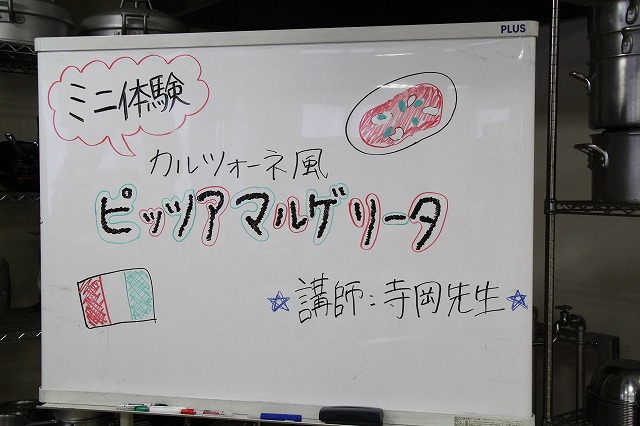 PLUS
ミニ体験
カルツォーネ風
ピッツアマルゲリータ
☆講師:寺岡先生☆